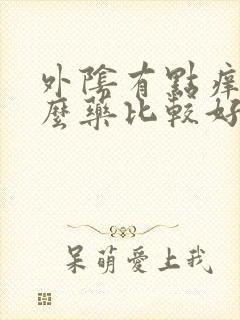 外陰有點痒
麼藥比較好
呆萌愛上我